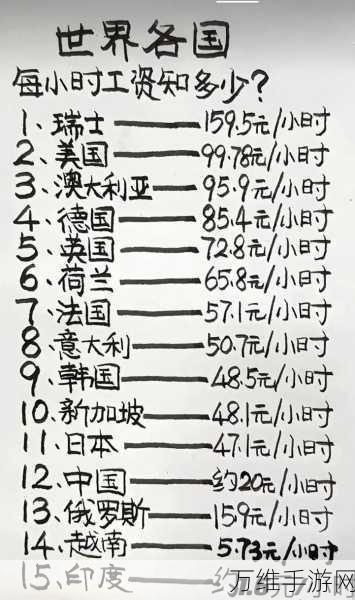 世界各国
每小时工资知多少?
1、瑞士——159.5元/小时
2、美国——99.78元/小时
3、澳大利亚——95.9元/小时
4、德国——85.4元/小时
5、英国——72.8元/小时
6、荷兰——65.8元/小时
7、法国——57.1元/小时
8、意大利——50.7元/小时
9、韩国——48.5元/小时
10、新加坡——48.1元/小时
11、日本——47.1元/小时
12、中国——约20元/小时
13、俄罗斯——15.9元/小时
14、越南——5.73元/小时
15、印度——约
万维手游网